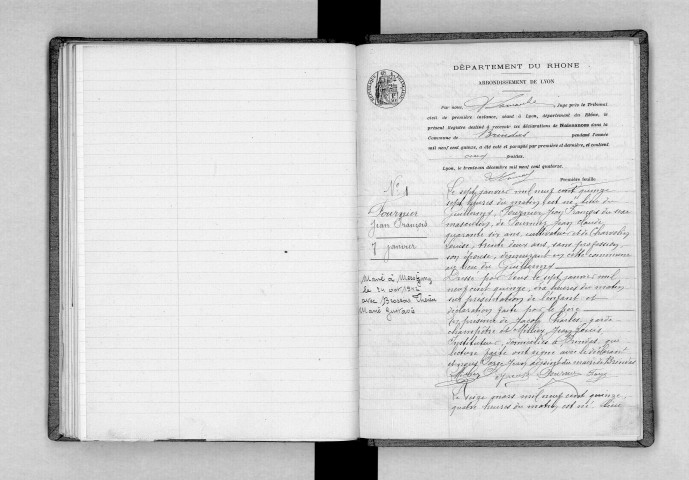 DÉPARTEMENT DU RHONE
ARRONDISSEMENT DE LYON
Par nous, Juge près le Tribunal
civil de première instance, séant à Lyon, département du Rhône, le
présent Registre destiné à recevoir les déclarations de Naissances dans la
Commune de Brindas pendant l'année
mil neuf cent quinze, a été coté et paraphé par première et dernière, et contient
cinq feuilles.
Lyon, le trente-un décembre mil neuf cent quatorze.
Première feuille.
N° 1
Fournier
Jean François
7 janvier
Marié à Messimy
le 24 oct 1945
avec
Marie
Le sept janvier mil neuf cent quinze
sept heures du matin est né, lieu de
Guillermy, Fournier Jean François du sexe
masculin, de Fournier Jean Claude,
quarante six ans, cultivateur et de
Louise, trente deux ans, sans profession,
son épouse, demeurant en cette commune
au lieu du Guillermy
Dressé par nous le sept janvier mil
neuf cent quinze, dix heures du matin
sur présentation de l'enfant et
déclaration faite par le père
En présence de Jacob Charles, garde
champêtre et Milliey Jean Louis
Instituteur, domiciliés à Brindas, qui
lecture faite ont signé avec le déclarant
et nous Forge Jean, du maire de Brindas
Le seize mars mil neuf cent quinze,
quatre heures du matin est né, lieu